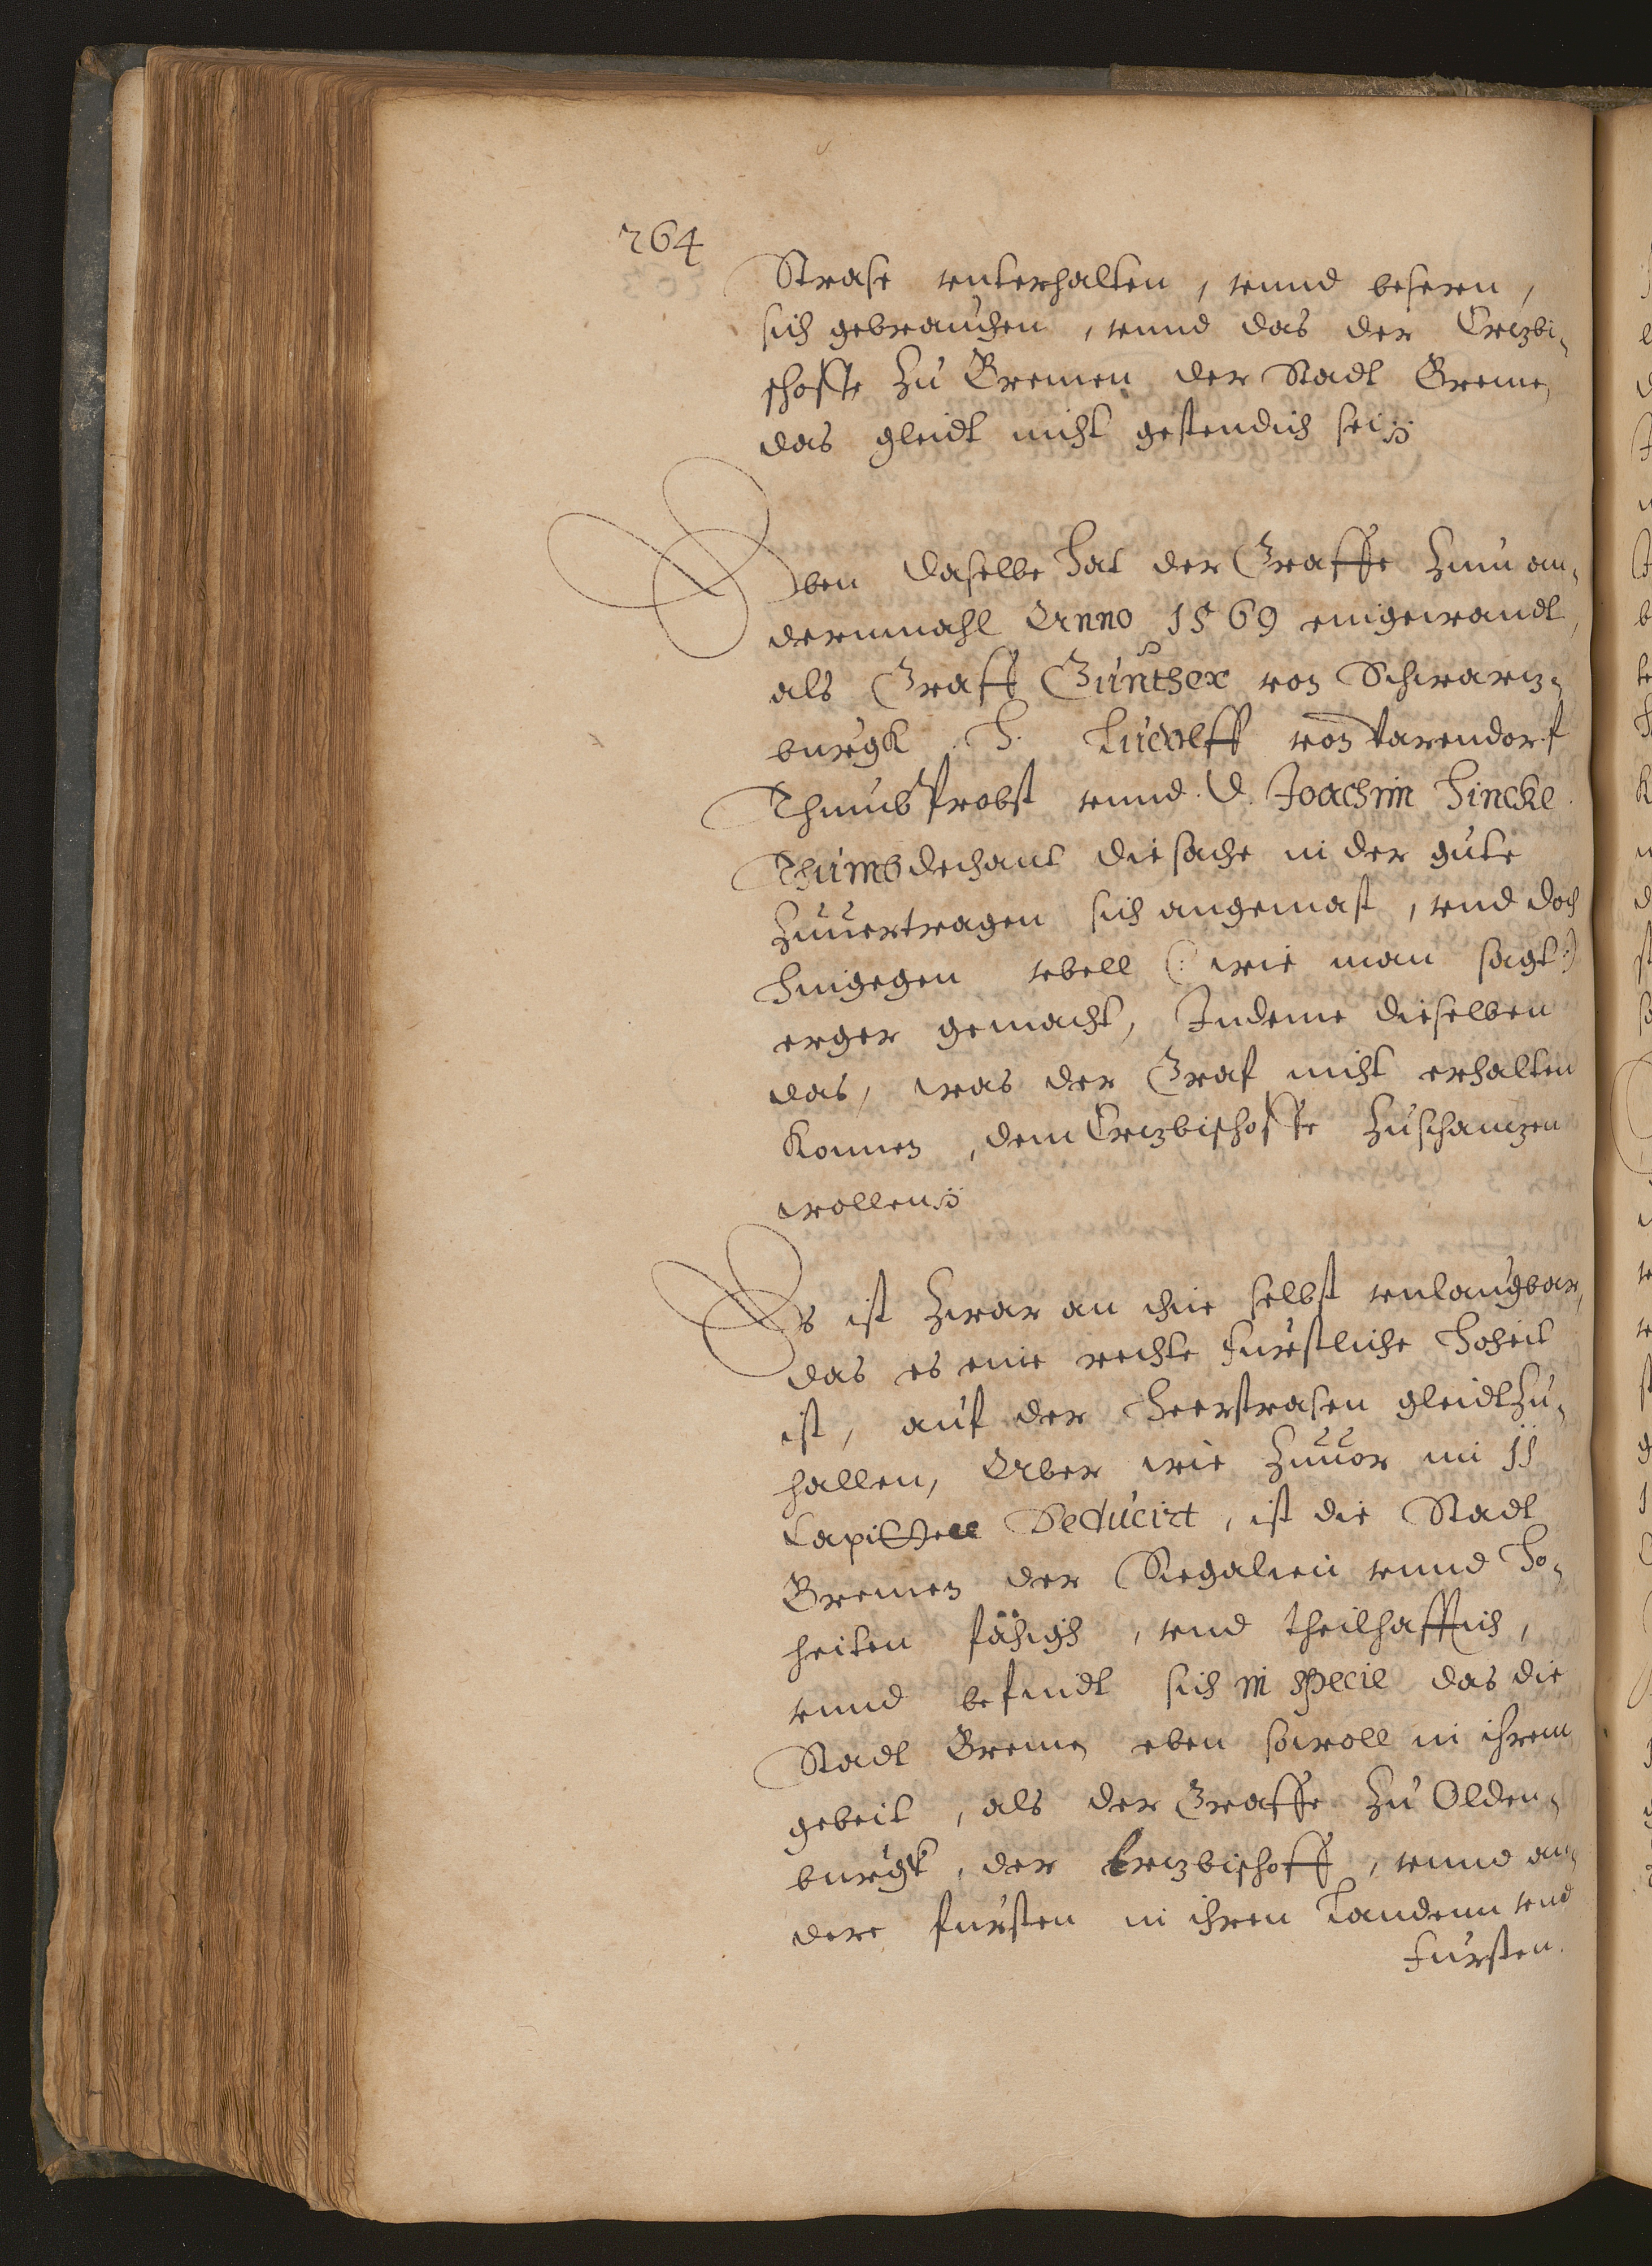 264
Strase vnterhalten, vnnd besern,
sich gebrauchen, vnnd das der Ertzbi-
schoffe zu Bremen der Stadt Breme,
das gleidt nicht gestendich sei
Eben daselbe hat der Graffe zum an-
dernmahl Anno 1569 eingewandt,
als Graff Günther von Schwartz-
burgk H. Ludolff von Varendorf
Thumbprobst vnnd D. Joachim Hincke
Thumbdechant die sache in der gute
zuuertragen sich angemast, vnd doch
hingegen vbell (: wie man sagt :)
erger gemacht, Indeme dieselben
das, was der Graf nicht erhalten
konnen, dem Ertzbischoffe zuschantzen
wollen
Es ist zwar an ihme selbst vnlaugbar,
das es eine rechte furstliche Hoheit
ist, auf der Heerstrasen gleidt zu-
halten, Aber wie zuuor im 11
Capittell Deducirt, ist die Stadt
Bremen der Regalien vnnd Ho-
heiten fähigh, vnd theilhafftich,
vnnd befindt sich in specie das die
Stadt Bremen eben sowoll in ihrem
gebeit, als der Graffe zu Olden-
burgk, der Ertzbischoff, vnnd an-
dere fursten in ihren Landenn vnd
Fursten.